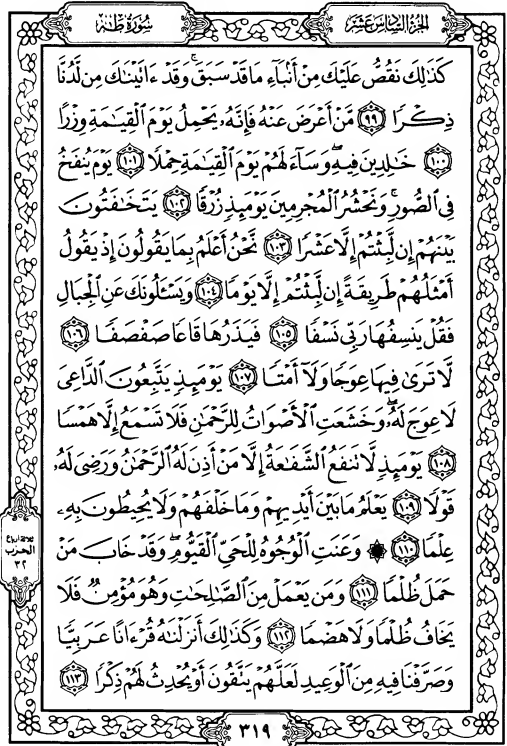 سُورَةُ طٰهٰ
الجُزْءُ السَّادِسَ عَشَرَ
كَذَٰلِكَ نَقُصُّ عَلَيْكَ مِنْ أَنۢبَآءِ مَا قَدْ سَبَقَۚ وَقَدْ ءَاتَيْنَٰكَ مِن لَّدُنَّا
ذِكْرًا ٩٩ مَّنْ أَعْرَضَ عَنْهُ فَإِنَّهُۥ يَحْمِلُ يَوْمَ ٱلْقِيَٰمَةِ وِزْرًا
١٠٠ خَٰلِدِينَ فِيهِۖ وَسَآءَ لَهُمْ يَوْمَ ٱلْقِيَٰمَةِ حِمْلًا ١٠١ يَوْمَ يُنفَخُ
فِى ٱلصُّورِۚ وَنَحْشُرُ ٱلْمُجْرِمِينَ يَوْمَئِذٍ زُرْقًا ١٠٢ يَتَخَٰفَتُونَ
بَيْنَهُمْ إِن لَّبِثْتُمْ إِلَّا عَشْرًا ١٠٣ نَّحْنُ أَعْلَمُ بِمَا يَقُولُونَ إِذْ يَقُولُ
أَمْثَلُهُمْ طَرِيقَةً إِن لَّبِثْتُمْ إِلَّا يَوْمًا ١٠٤ وَيَسْـَٔلُونَكَ عَنِ ٱلْجِبَالِ
فَقُلْ يَنسِفُهَا رَبِّى نَسْفًا ١٠٥ فَيَذَرُهَا قَاعًا صَفْصَفًا ١٠٦
لَّا تَرَىٰ فِيهَا عِوَجًا وَلَآ أَمْتًا ١٠٧ يَوْمَئِذٍ يَتَّبِعُونَ ٱلدَّاعِىَ
لَا عِوَجَ لَهُۥۖ وَخَشَعَتِ ٱلْأَصْوَاتُ لِلرَّحْمَٰنِ فَلَا تَسْمَعُ إِلَّا هَمْسًا
١٠٨ يَوْمَئِذٍ لَّا تَنفَعُ ٱلشَّفَٰعَةُ إِلَّا مَنْ أَذِنَ لَهُ ٱلرَّحْمَٰنُ وَرَضِىَ لَهُۥ
قَوْلًا ١٠٩ يَعْلَمُ مَا بَيْنَ أَيْدِيهِمْ وَمَا خَلْفَهُمْ وَلَا يُحِيطُونَ بِهِۦ
عِلْمًا ١١٠ ۞ وَعَنَتِ ٱلْوُجُوهُ لِلْحَىِّ ٱلْقَيُّومِۖ وَقَدْ خَابَ مَنْ
حَمَلَ ظُلْمًا ١١١ وَمَن يَعْمَلْ مِنَ ٱلصَّٰلِحَٰتِ وَهُوَ مُؤْمِنٌ فَلَا
يَخَافُ ظُلْمًا وَلَا هَضْمًا ١١٢ وَكَذَٰلِكَ أَنزَلْنَٰهُ قُرْءَانًا عَرَبِيًّا
وَصَرَّفْنَا فِيهِ مِنَ ٱلْوَعِيدِ لَعَلَّهُمْ يَتَّقُونَ أَوْ يُحْدِثُ لَهُمْ ذِكْرًا ١١٣
ثلاثة أرباع
الحزب
٣٢
٣١٩